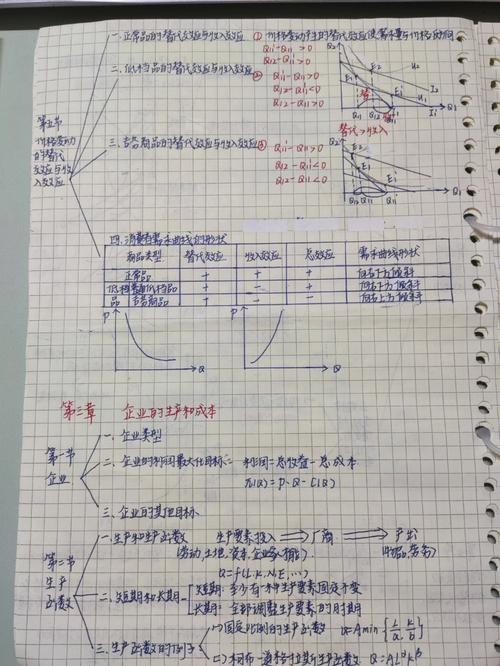 第五节
价格变动
的替代
效应与收
入效应
一.正常品的替代效应与收入效应
① 价格变动产生的替代效应使需求量与价格反向
Q1i-Q11>0
Q12-Q1i>0
二.低档品的替代效应与收入效应
② Q1i-Q11>0
Q12-Q1i<0
Q12-Q11>0
Q2
E1
E2
U2
I2
U1
I1
Q11
Q12
Q1
替代>收入
三.吉芬商品的替代效应与收入效应
③ Q1i-Q11>0
Q12-Q1i<0
Q12-Q11<0
E2
E1
Q12
Q11
Q1
四.消费者需求曲线的形状
商品类型 替代效应 收入效应 总效应 需求曲线形状
正常品 + + + 向右下方倾斜
低档 普通低档品 + - + 向右下方倾斜
品 吉芬商品 + - - 向右上方倾斜
P
Q
P
Q
第三章 企业的生产和成本
第一节
企业
一.企业类型
二.企业的利润最大化目标: 利润=总收益-总成本
π(Q)=P·Q-C(Q)
三.企业的其他目标
第二节
生产
函数
一.生产和生产函数
生产要素投入 ⟹ 厂商 ⟹ 产出
(劳动.土地.资本.企业家才能) (物品.劳务)
Q=f(L,K,N,E,...)
二.短期和长期
短期:至少有一种生产要素固定不变
长期:全部调整生产要素的时期
三.生产函数的例子
(1)固定比例的生产函数 Q=Amin{L/a,K/b}
(2)柯布-道格拉斯生产函数 Q=AL^αK^β